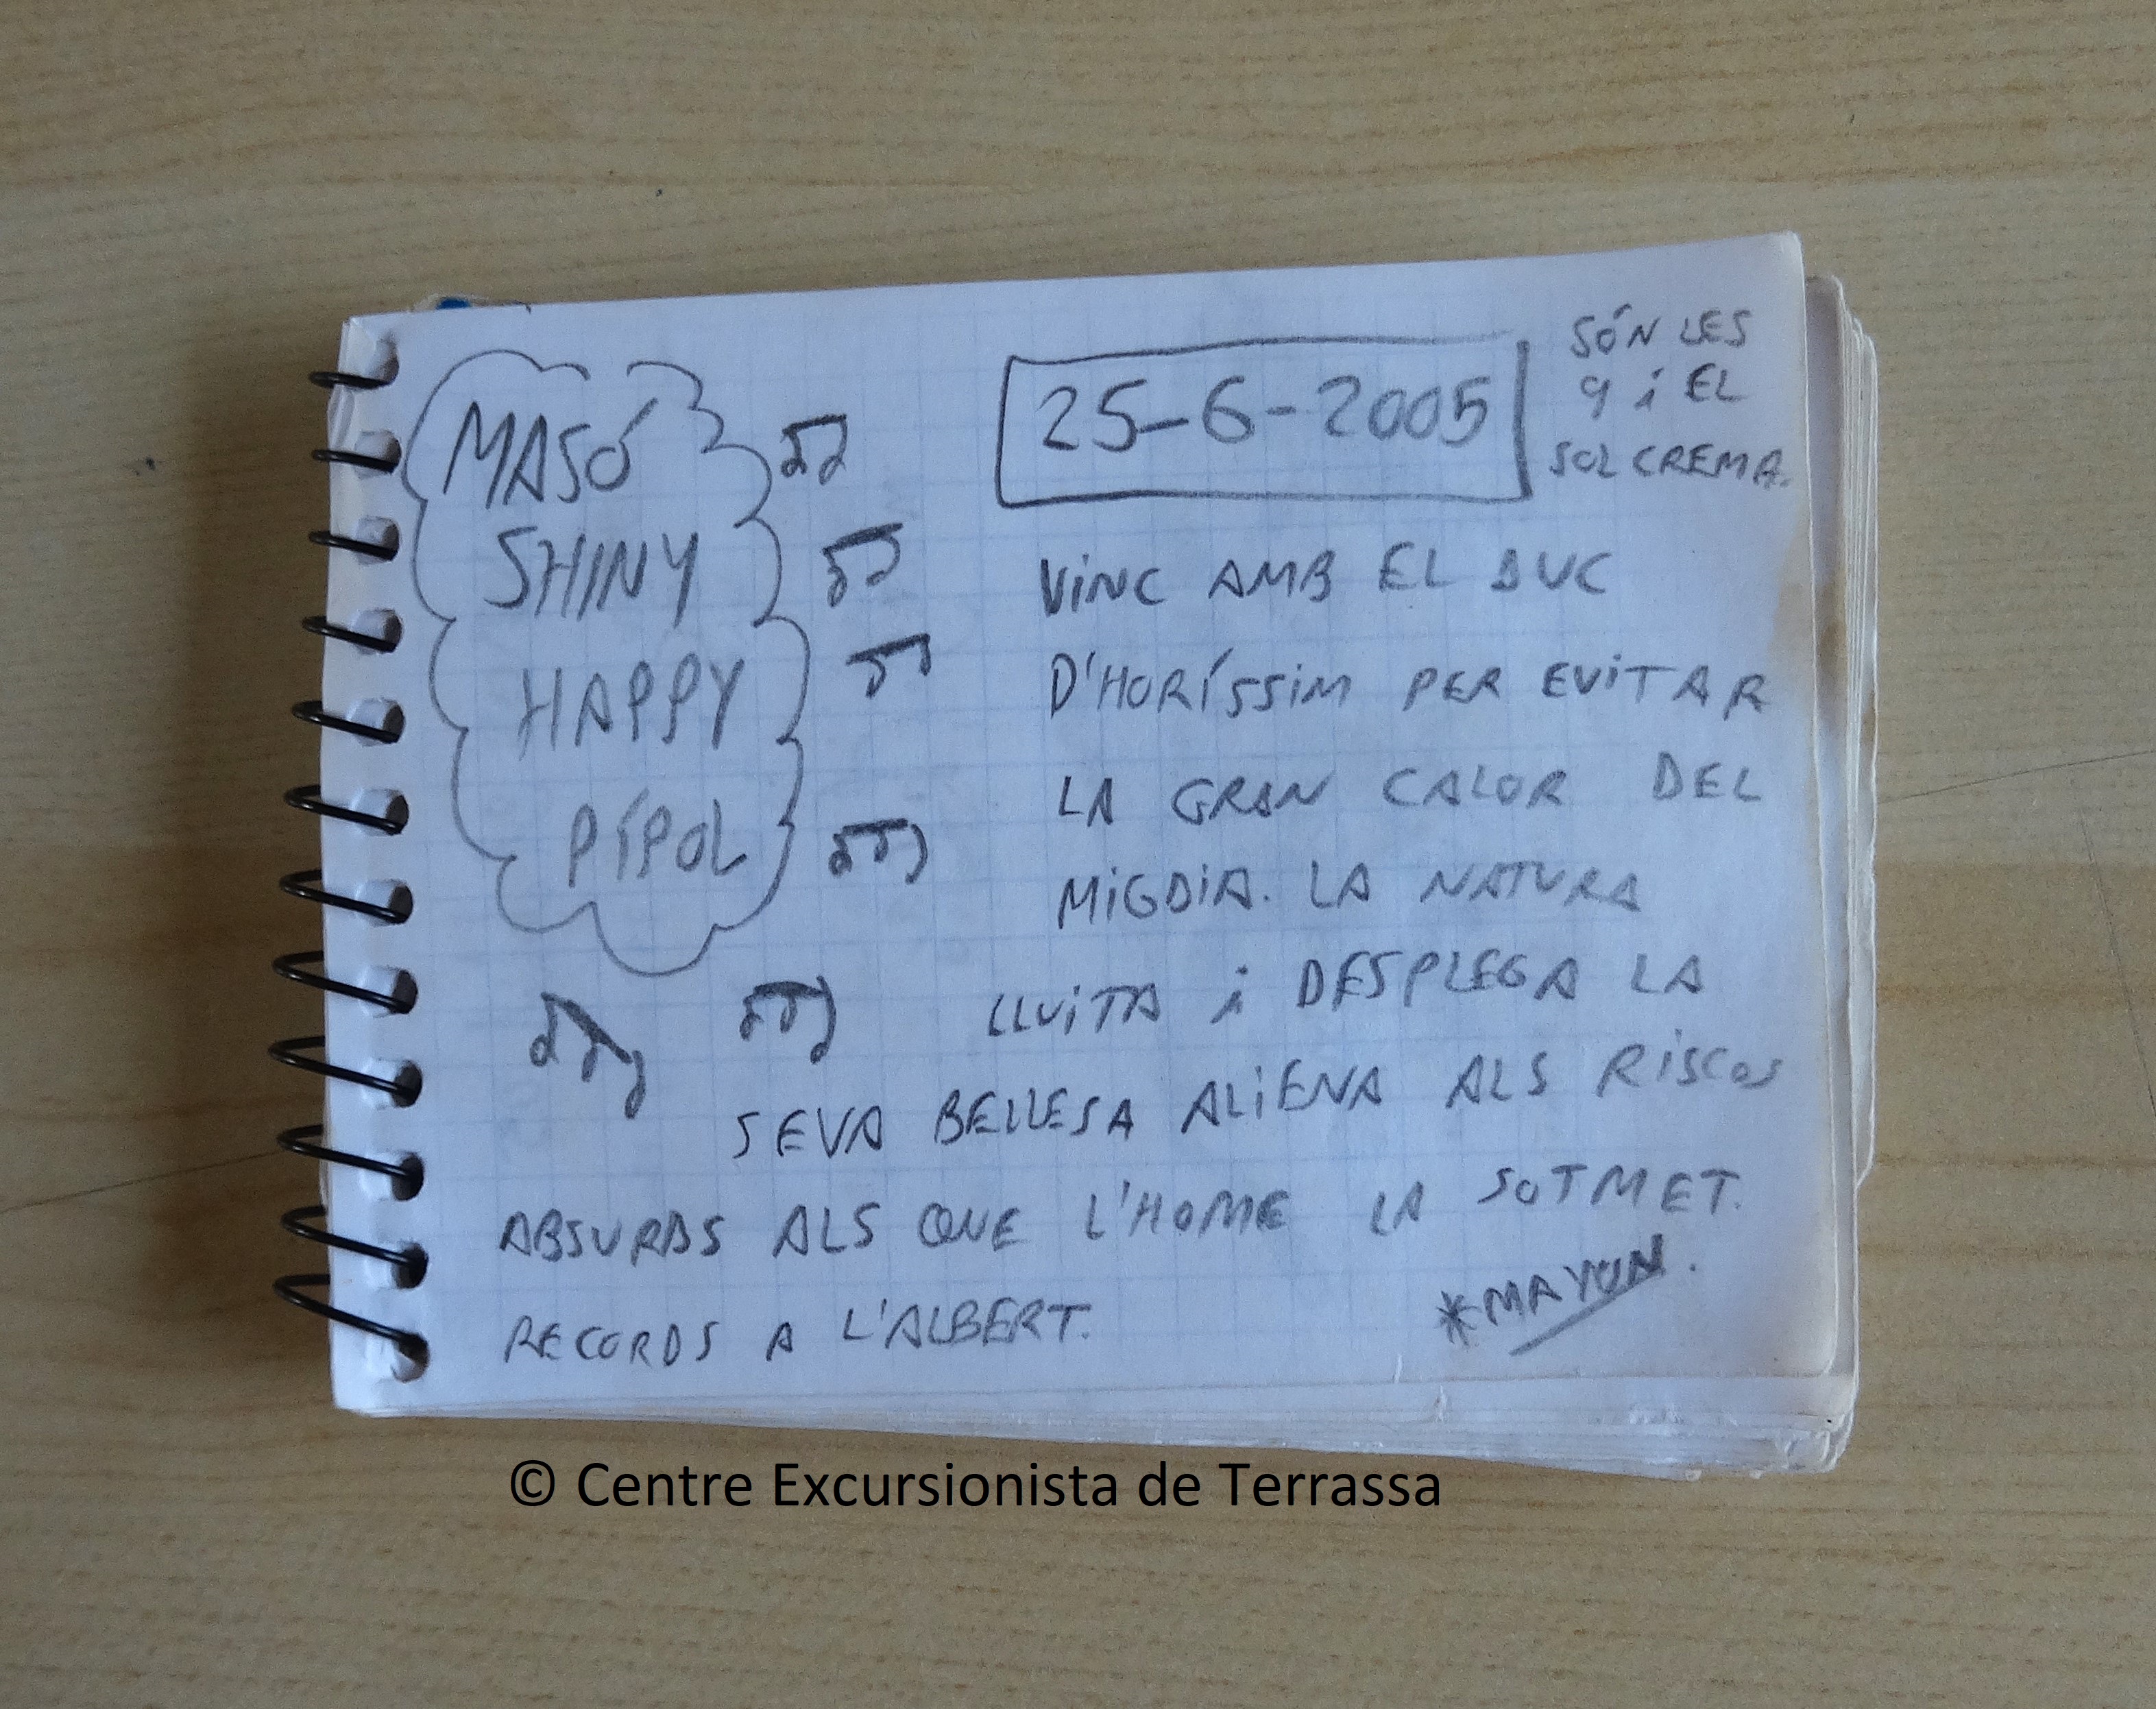 MASÓ
SHINY
HAPPY
PÍPOL
25-6-2005
SÓN LES
9 i EL
SOL CREMA.
ViNC AMB EL DUC
D'HORÍSSiM PER EViTAR
LA GRAN CALOR DEL
MiGDiA. LA NATURA
LLUiTA i DESPLEGA LA
SEVA BELLESA ALiENA ALS RiSCOS
ABSURDS ALS QUE L'HOME LA SOTMET.
RECORDS A L'ALBERT.
*MAYUN.
© Centre Excursionista de Terrassa